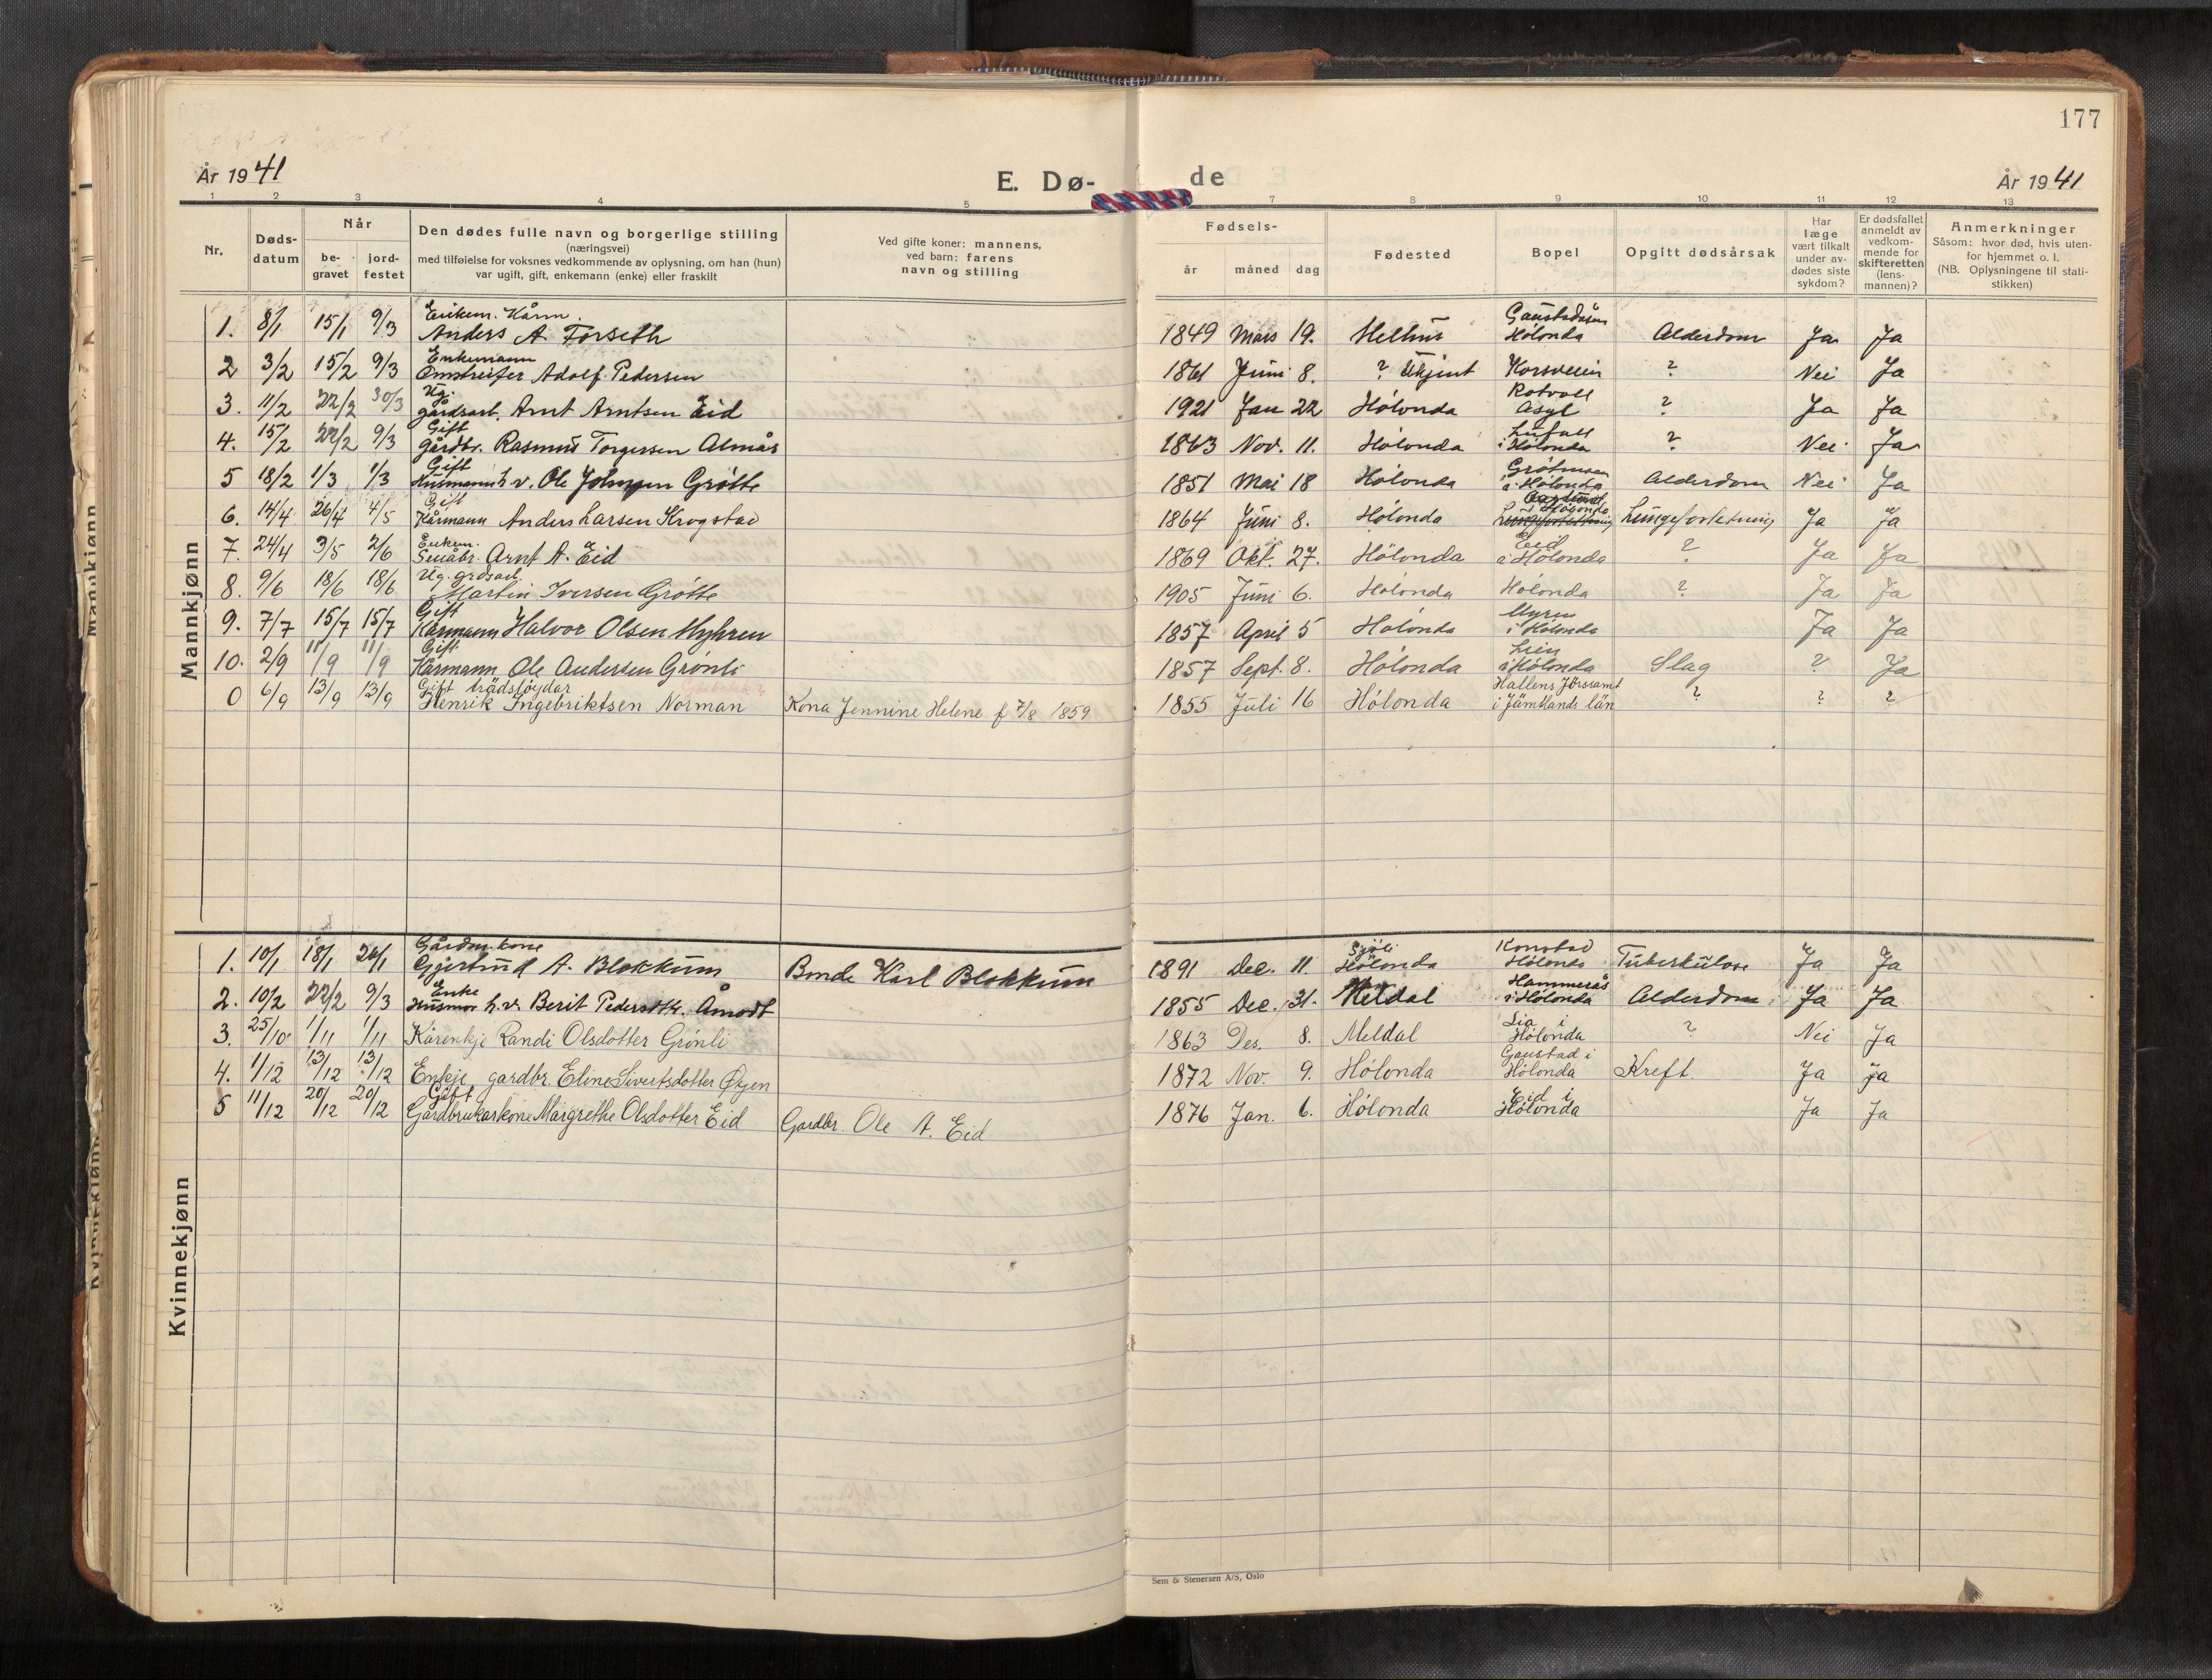 177
År 1941
E. Dø-
de
År 1941
1 2 3 4 5 7 8 9 10 11 12 13
Nr.
Døds-
datum
Når
be-
gravet
jord-
festet
Den dødes fulle navn og borgerlige stilling
(næringsvei)
med tilføielse for voksnes vedkommende av oplysning, om han (hun)
var ugift, gift, enkemann (enke) eller fraskilt
Ved gifte koner: mannens,
ved barn: farens
navn og stilling
Fødsels-
år måned dag
Fødested
Bopel
Opgitt dødsårsak
Har
læge
vært tilkalt
under av-
dødes siste
sykdom?
Er dødsfallet
anmeldt av
vedkom-
mende for
skifteretten
(lens-
mannen)?
Anmerkninger
Såsom: hvor død, hvis uten-
for hjemmet o. l.
(NB. Oplysningene til stati-
stikken)
Mannkjønn
Enkem. Kårm.
1. 8/1 15/1 9/3 Anders A. Forseth 1849 Mars 19. Melhus Hølonda Alderdom Ja Ja
Enkemann
2 3/2 15/2 9/3 Omstreifer Adolf Pedersen 1861 Juni 8. ? Ukjent Korsveien ? Nei Ja
Ug. Rotvoll
3. 11/2 22/2 30/3 gårdsarb. Arnt Arntsen Eid 1921 Jan 22 Hølonda Asyl ? Ja Ja
Gift
4. 15/2 22/2 9/3 gårdbr. Rasmus Torgersen Almås 1863 Nov. 11. Hølonda i Hølonda ? Nei Ja
Gift Grötmoen
5 18/2 1/3 1/3 Husmann h.v. Ole Johnsen Grötte 1851 Mai 18 Hølonda i Hølonda Alderdom Nei Ja
Gift i Hølonda
6. 14/4 26/4 4/5 Kårmann Anders Larsen Krogstad 1864 Juni 8. Hølonda Lungefortetning Lungefortetning Ja Ja
Enkem. Eid
7. 24/4 3/5 2/6 Småbr. Arnt A. Eid 1869 Okt. 27. Hölonda i Hölonda ? Ja Ja
Ug. grdsarb.
8. 9/6 18/6 18/6 Martin Iversen Grötte 1905 Juni 6. Hølonda Hølonda ? Ja Ja
Gift Myren
9. 7/7 15/7 15/7 Kårmann Halvor Olsen Myhren 1857 April 5 Hølonda i Hølonda Ja Ja
Gift
10. 2/9 11/9 11/9 Kårmann Ole Andersen Grønli 1857 Sept. 8. Hölonda i Hölonda Slag ? Ja
Gift trädslöydar Hallens
0 6/9 13/9 13/9 Henrik Ingebriktsen Norman Kona Jennine Helene f 7/8 1859 1855 Juli 16 Hölonda i Jämtlands län ? ? ?
Kvinnekjønn
Sjöli Konstad
1. 10/1 18/1 26/1 Gjertrud A. Blokkum Bonde Karl Blokkum 1891 Dec. 11. Hølonda Hølonda Tuberkulose Ja Ja
Enke Hammerås
2. 10/2 22/2 9/3 Husmor h.v. Berit Pedersdtr. Åmodt 1855 Dec. 31. Meldal i Hølonda Alderdom Ja Ja
Lia i
3. 25/10 1/11 1/11 Kårenkje Randi Olsdotter Grönli 1863 Des. 8. Meldal Hölonda ? Nei Ja
Gaustad i
4. 1/12 13/12 13/12 Enkje gardbr. Eline Sivertsdotter Øyen 1872 Nov. 9. Hölonda Hölonda Kreft. Ja Ja
Gift Eid i
5 11/12 20/12 20/12 Gardbrukarkone Margrethe Olsdotter Eid Gardbr. Ole A. Eid 1876 Jan. 6. Hölonda Hölonda Ja Ja
Sem & Stenersen A/S, Oslo